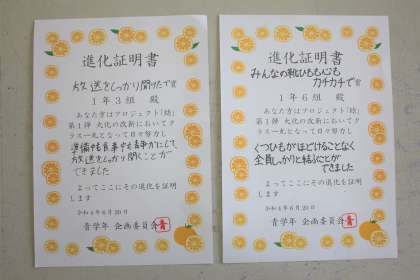 進化証明書
放送をしっかり聞けたで賞
1年3組 殿
あなた方はプロジェクト「結」
第1弾 大化の改新においてク
ラス一丸となって日々努力し
準備中も食事中も静かにして
放送をしっかり聞くことが
できました
よってここにその進化を証明
します
令和4年6月20日
青学年 企画委員会
青
進化証明書
みんなの靴ひもも心も
カチカチで賞
1年6組 殿
あなた方はプロジェクト「結」
第1弾 大化の改新においてク
ラス一丸となって日々努力し
くつひもがほどけることなく
全員しっかりと結ぶことが
できました
よってここにその進化を証明
します
令和4年6月20日
青学年 企画委員会
青